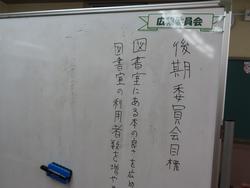 広報委員会
後期委員会目標
図書室にある本の良さを広め
図書室の利用者数を増や